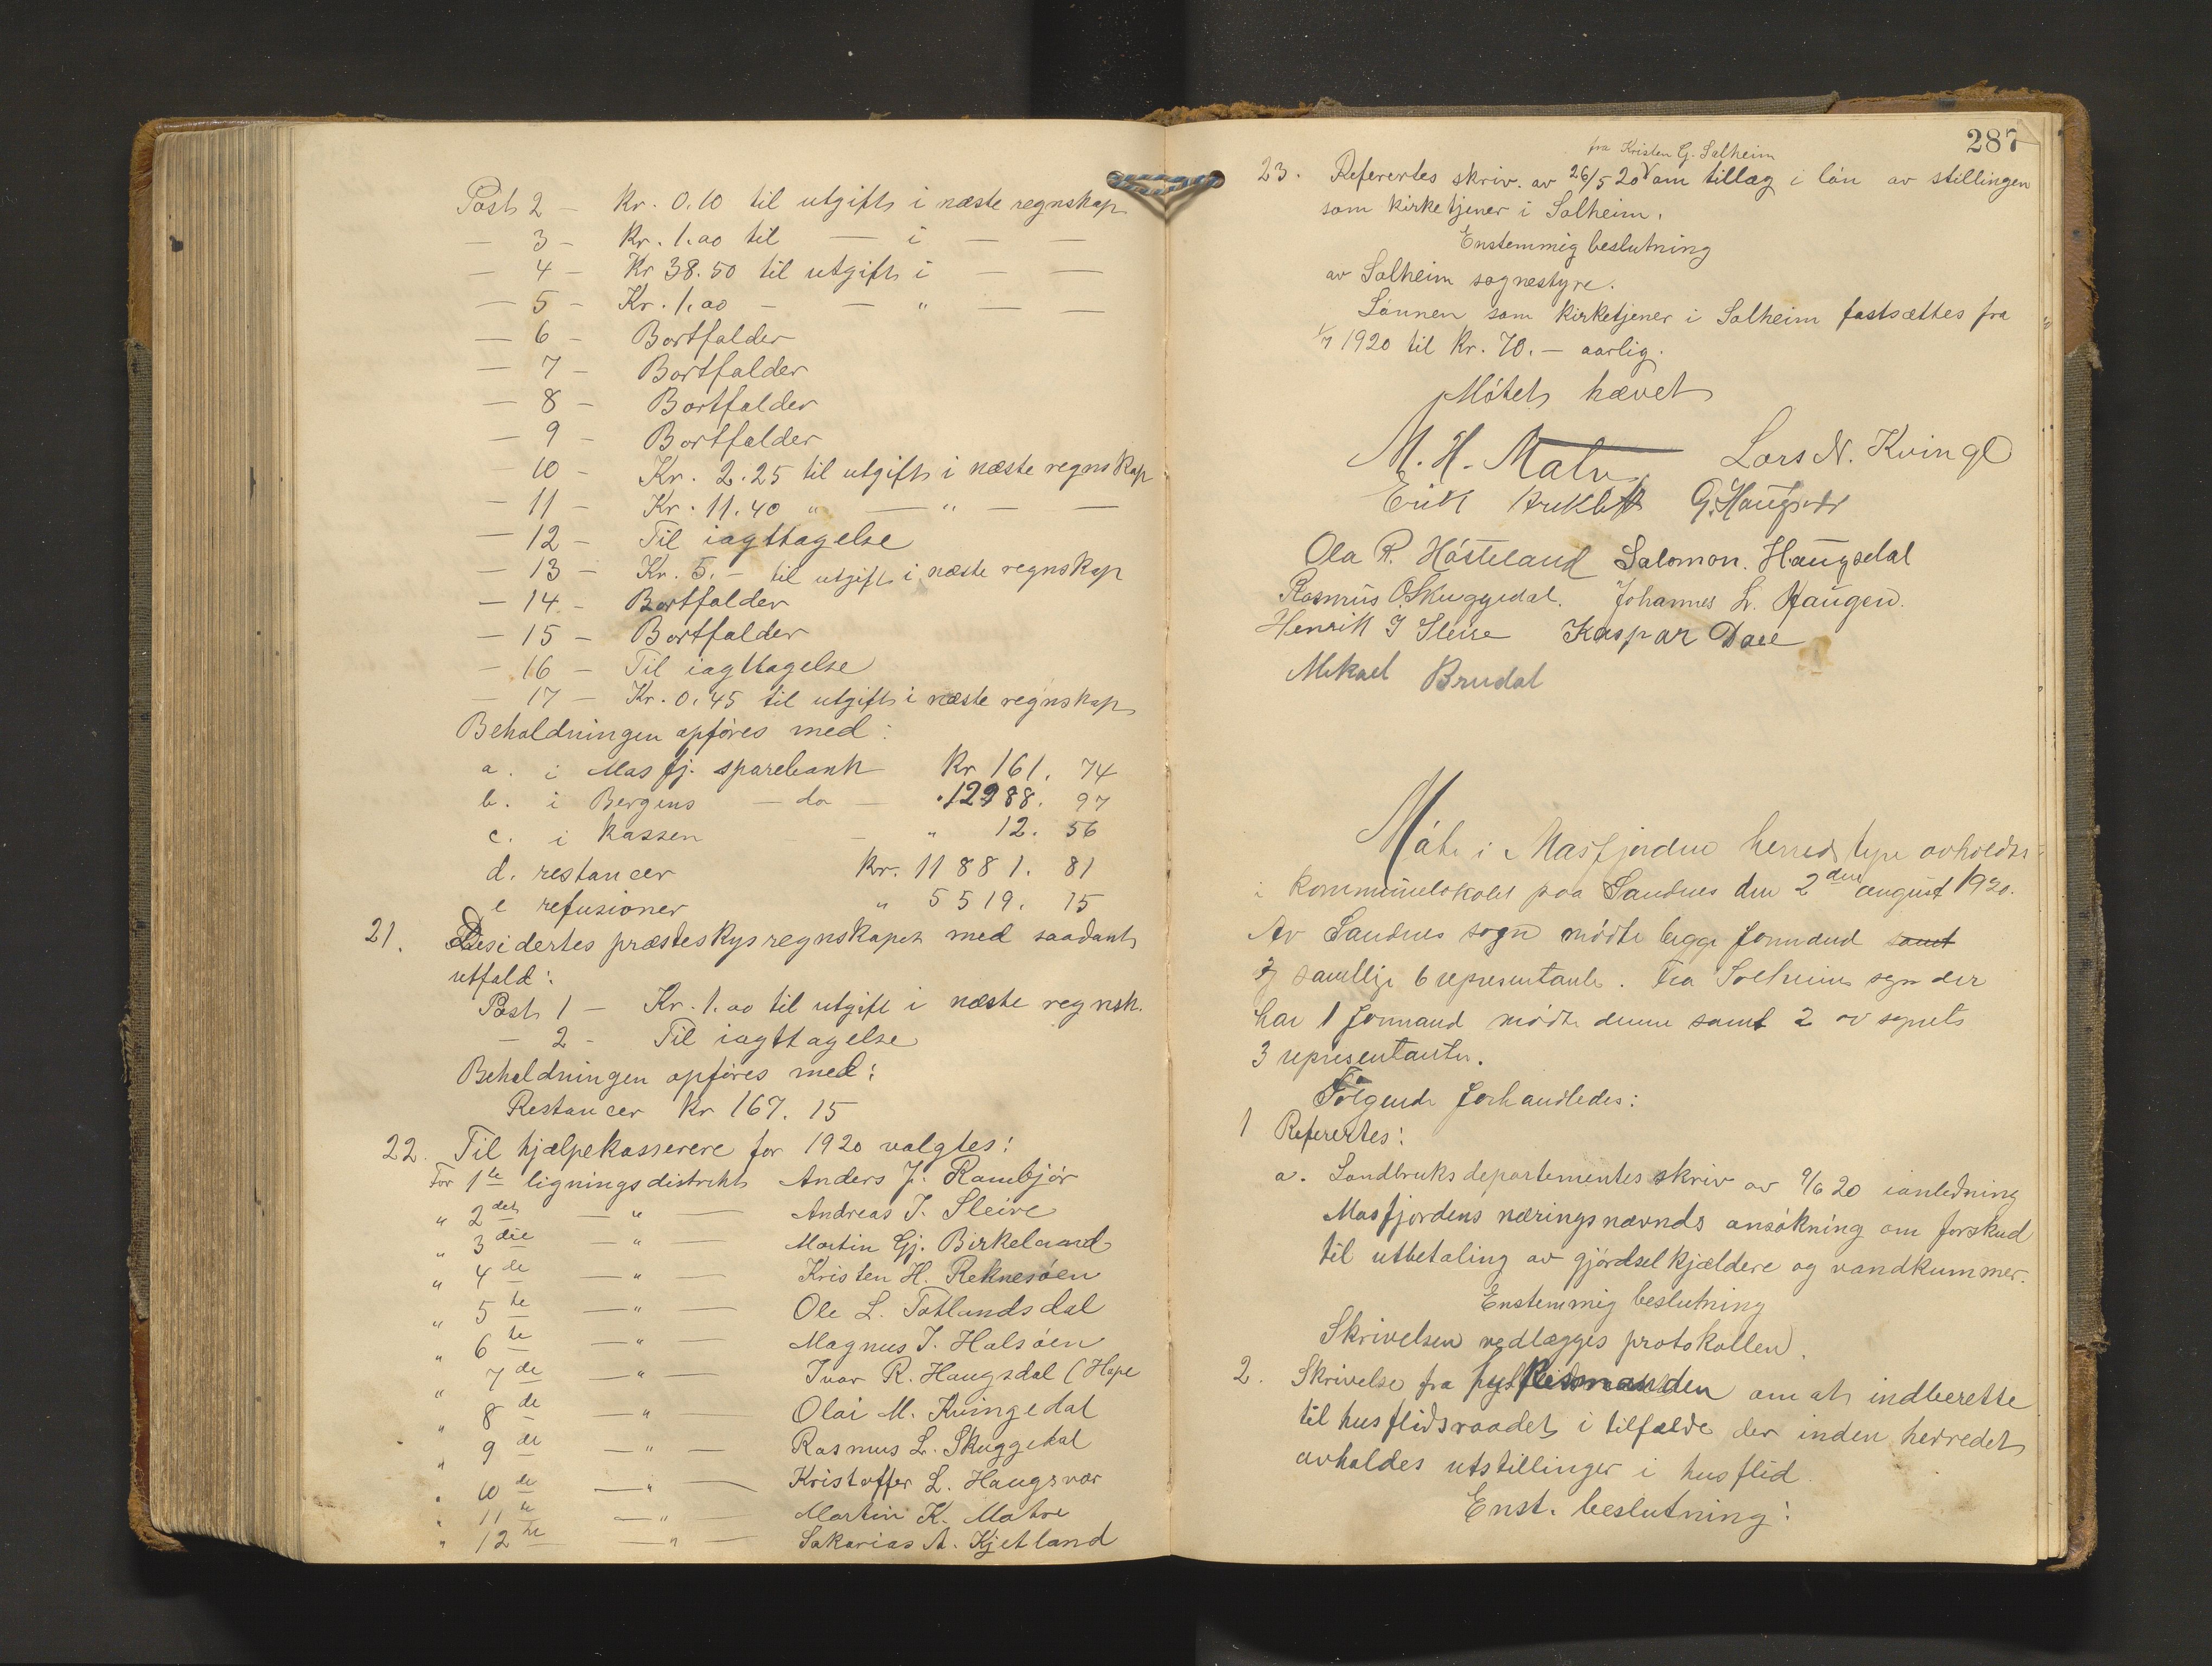 Post 2 – Kr. 0.10 til utgift i næste regnskap
— 3 – Kr. 1.00 til — i — —
— 4 – Kr 38.50 til utgift i — —
— 5 – Kr. 1.00 – — " — —
— 6 – Bortfalder
— 7 – Bortfalder
— 8 – Bortfalder
— 9 – Bortfalder
— 10 – Kr. 2.25 til utgift i næste regnskap
— 11 – Kr. 11.40 " — " — —
— 12 – Til iagttagelse
— 13 – Kr. 5.– til utgift i næste regnskap
— 14 – Bortfalder
— 15 – Bortfalder
— 16 – Til iagttagelse
— 17 – Kr. 0.45 til utgift i næste regnskap
Beholdningen opføres med:
a. i Masfj. sparebank Kr 161. 74
b. i Bergens — do — " 12988. 97
c. i kassen – " 12. 56
d. restancer kr. 11881. 81
e refusioner " 5519. 15
21. Desidertes præsteskysregnskapet med saadant
utfald:
Post 1 – Kr. 1.00 til utgift i næste regnsk.
— 2 – Til iagttagelse
Beholdningen opføres med:
Restancer Kr 167. 15
22. Til hjælpekasserere for 1920 valgtes:
For 1te ligningsdistrikt Anders J. Rambjør
" 2det — " — Andreas J. Sleire
" 3die — " — Martin Gj. Birkeland
" 4de — " — Kristen H. Reknesøen
" 5te — " — Ole L. Totlandsdal
" 6te — " — Magnus J. Halsøen
" 7de — " — Ivar R. Haugsdal (Hope
" 8de — " Olai M. Kvingedal
" 9de — " — Rasmus L. Skuggedal
" 10de — " — Kristoffer L. Haugsvær
" 11te — " — Martin K. Matre
" 12te — " — Sakarias A. Kjetland
287
fra Kristen G. Solheim
23. Referertes skriv. av 26/5 20 om tillæg i løn av stillingen
som kirketjener i Solheim.
Enstemmig beslutning
av Solheim sognestyre.
Lønnen som kirketjener i Solheim fastsættes fra
1/7 1920 til kr. 70.– aarlig.
Møtet hævet
M. H. Matre Lars N. Kvinge
Erik G. Haugsvær
Ola R. Høsteland Salomon. Haugsdal
Rasmus O. Skuggedal. Johannes L. Haugen.
Henrik J Sleire Kaspar Dale
Mikael Brudal
Møte i Masfjorden herredstyre avholdtes
i kommunelokalet paa Sandnes den 2den august 1920.
Av Sandnes sogn mødte begge formænd samt
og samtlige 6 representanter. Fra Solheim sogn der
har 1 formand mødte denne samt 2 av sognets
3 representanter.
Følgende forhandledes:
1 Referertes:
a. Landbruksdepartementets skriv av 9/6 20 i anledning
Masfjordens næringsnævnds ansøkning om forskud
til utbetaling av gjødselkjældere og vandkummer.
Enstemmig beslutning
Skrivelsen vedlægges protokollen.
2. Skrivelse fra om at indberette
til husflidsraadet i tilfælde der inden herredet
avholdes utstillinger i husflid.
Enst. beslutning: